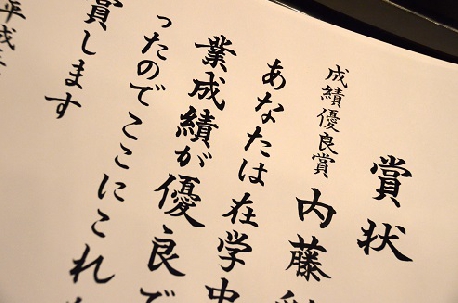 賞状
成績優良賞
内藤
あなたは在学中
業成績が優良で
ったのでここにこれ
賞します
平成